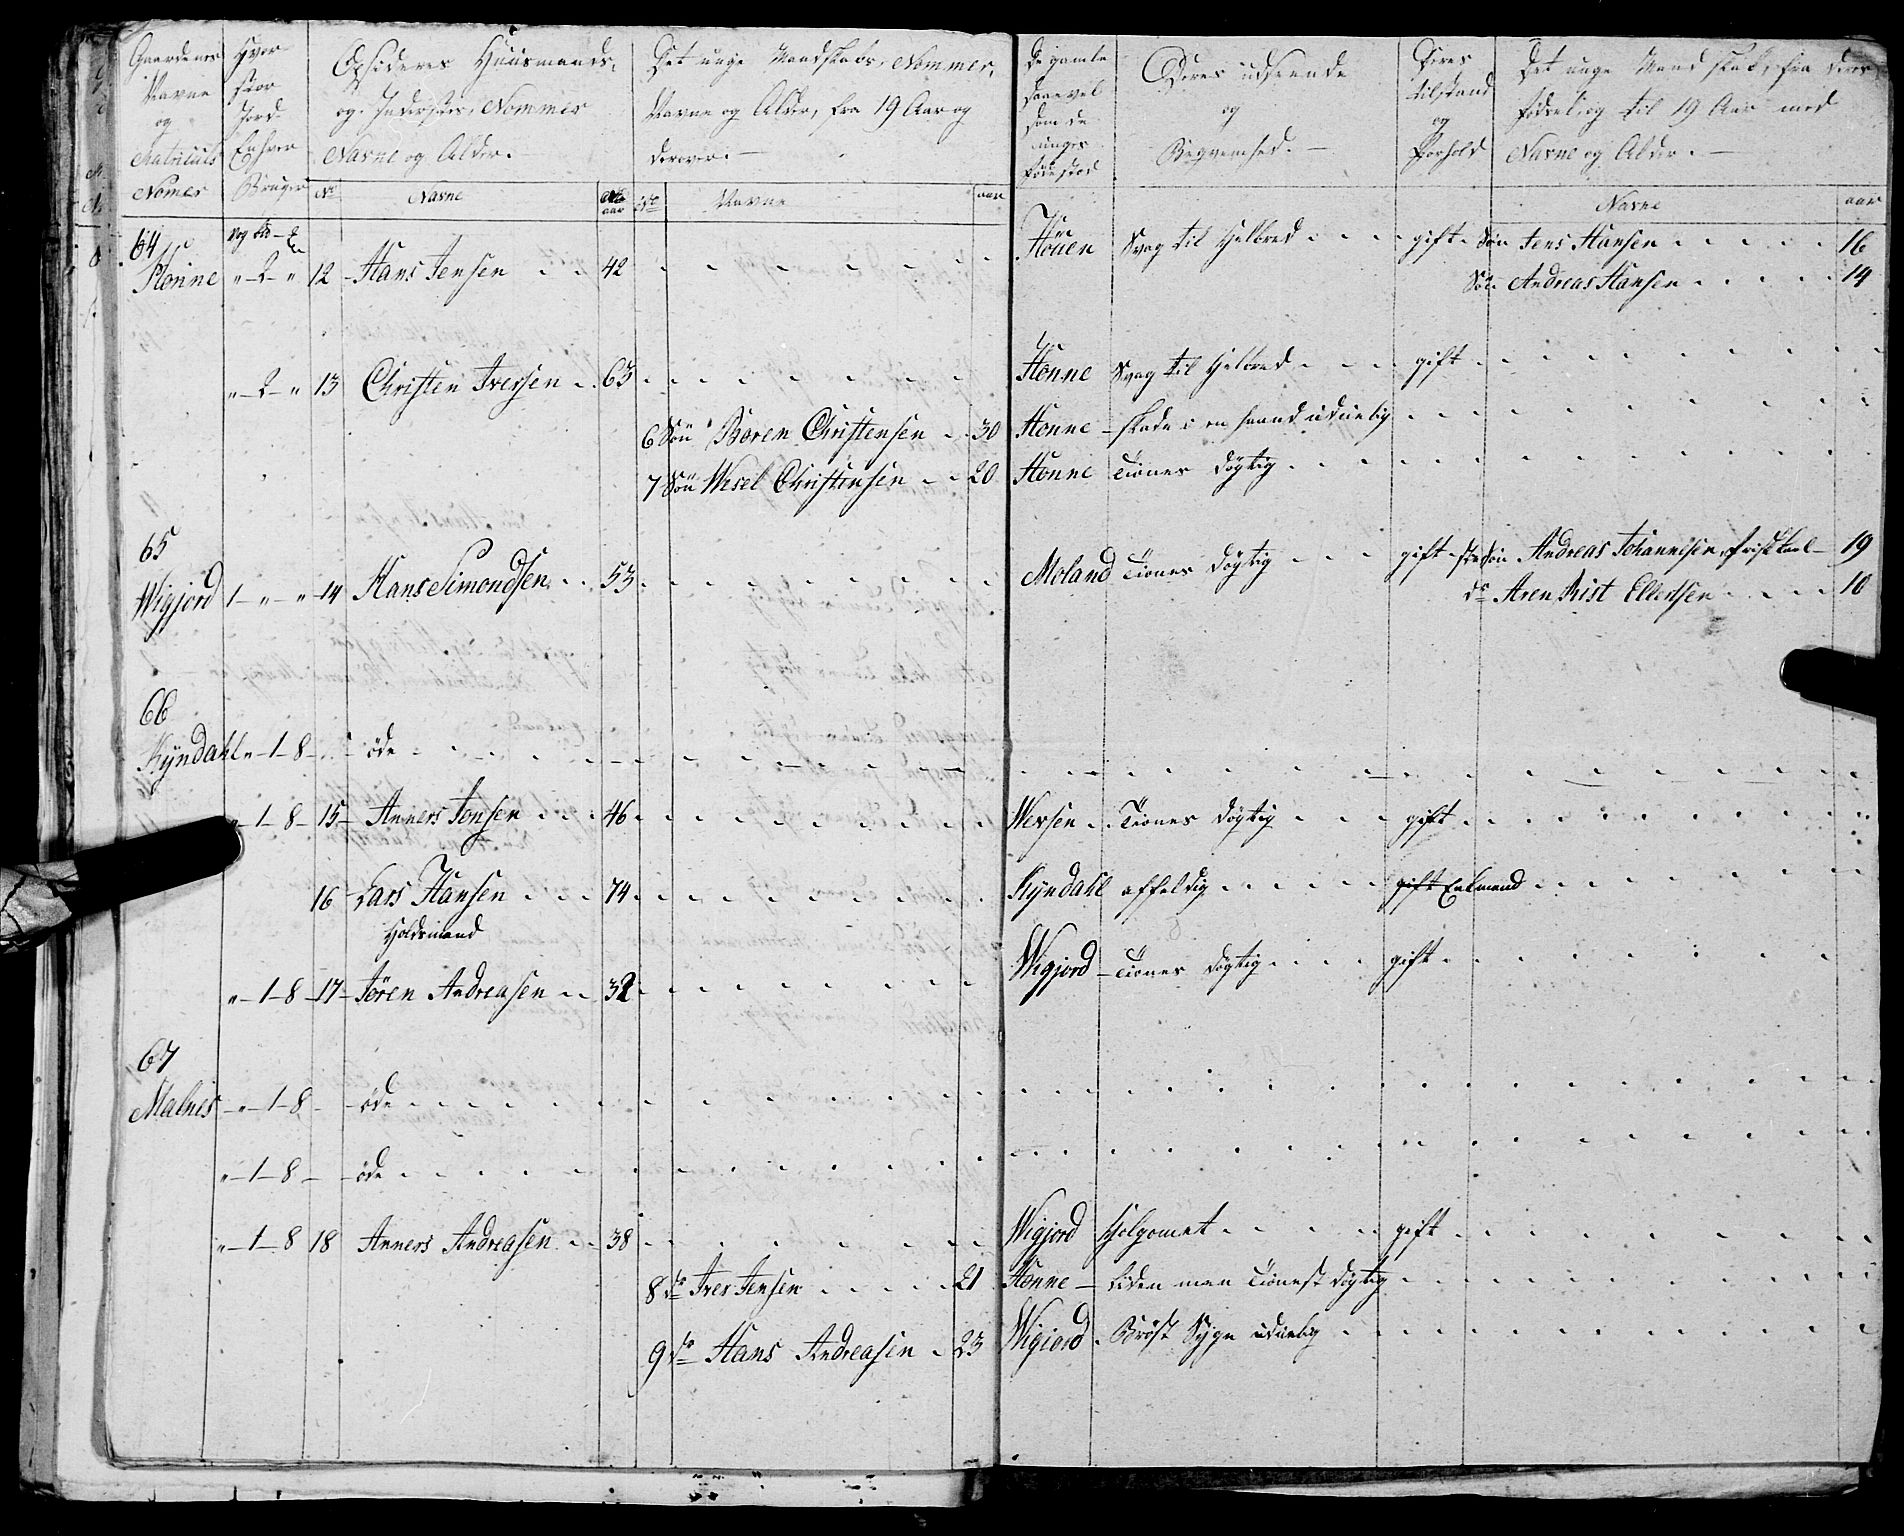 Gaardenes Navne og Matriculs Nomer
Hvor stor Jord Enhver Bruger
Opsideres Huusmænds og Inderster, Nommer Navne og Alder.
Det unge Mandskabs, Nommer, Navne og Alder, fra 19 Aar og derover.
De gamle saavel som de unges fødested
Deres udseende og Beqvemhed.
Deres tilstand og Forhold
Det unge Mandskab, fra deres fødsel og til 19 Aar med Navne og Alder.
No Navne aar No Navne aar Navne aar
64 Vog bd
Honne " 2 " 12 Hans Jensen 42 Houen Svag til Helbred gift Søn Jens Hansen 16
Søn Andreas Hansen 14
" 2 " 13 Christen Iversen 63 Honne Svag til Helbred gift
6 Søn Søren Christensen 30 Honne skade i en haand uduelig
7 Søn Wesel Christensen 20 Honne Tienes dögtig
65
Wigjord 1 " " 14 Hans Simondsen 53 Moland Tienes dögtig gift Sted Søn Andreas Johannesen 19
do Aren Rist Ellertsen 10
66
Kyndahl " 1 8 öde
" 1 8 15 Anners Jonsen 46 Wersen Tienes dögtig gift
16 Lars Hansen 74 Kyndahl affeldig gift Enkmand
Holdsmand
" 1 8 17 Søren Andreasen 32 Wigjord Tienes dögtig gift
67
Malnes " 1 8 öde
" 1 8 öde
" 1 8 18 Anners Andreasen 38 Wigjord gift
8 do Iver Jensen 21 Honne liden men Tienest dögtig
9 do Hans Andreasen 23 Wigjord Bröst Syge uduelig